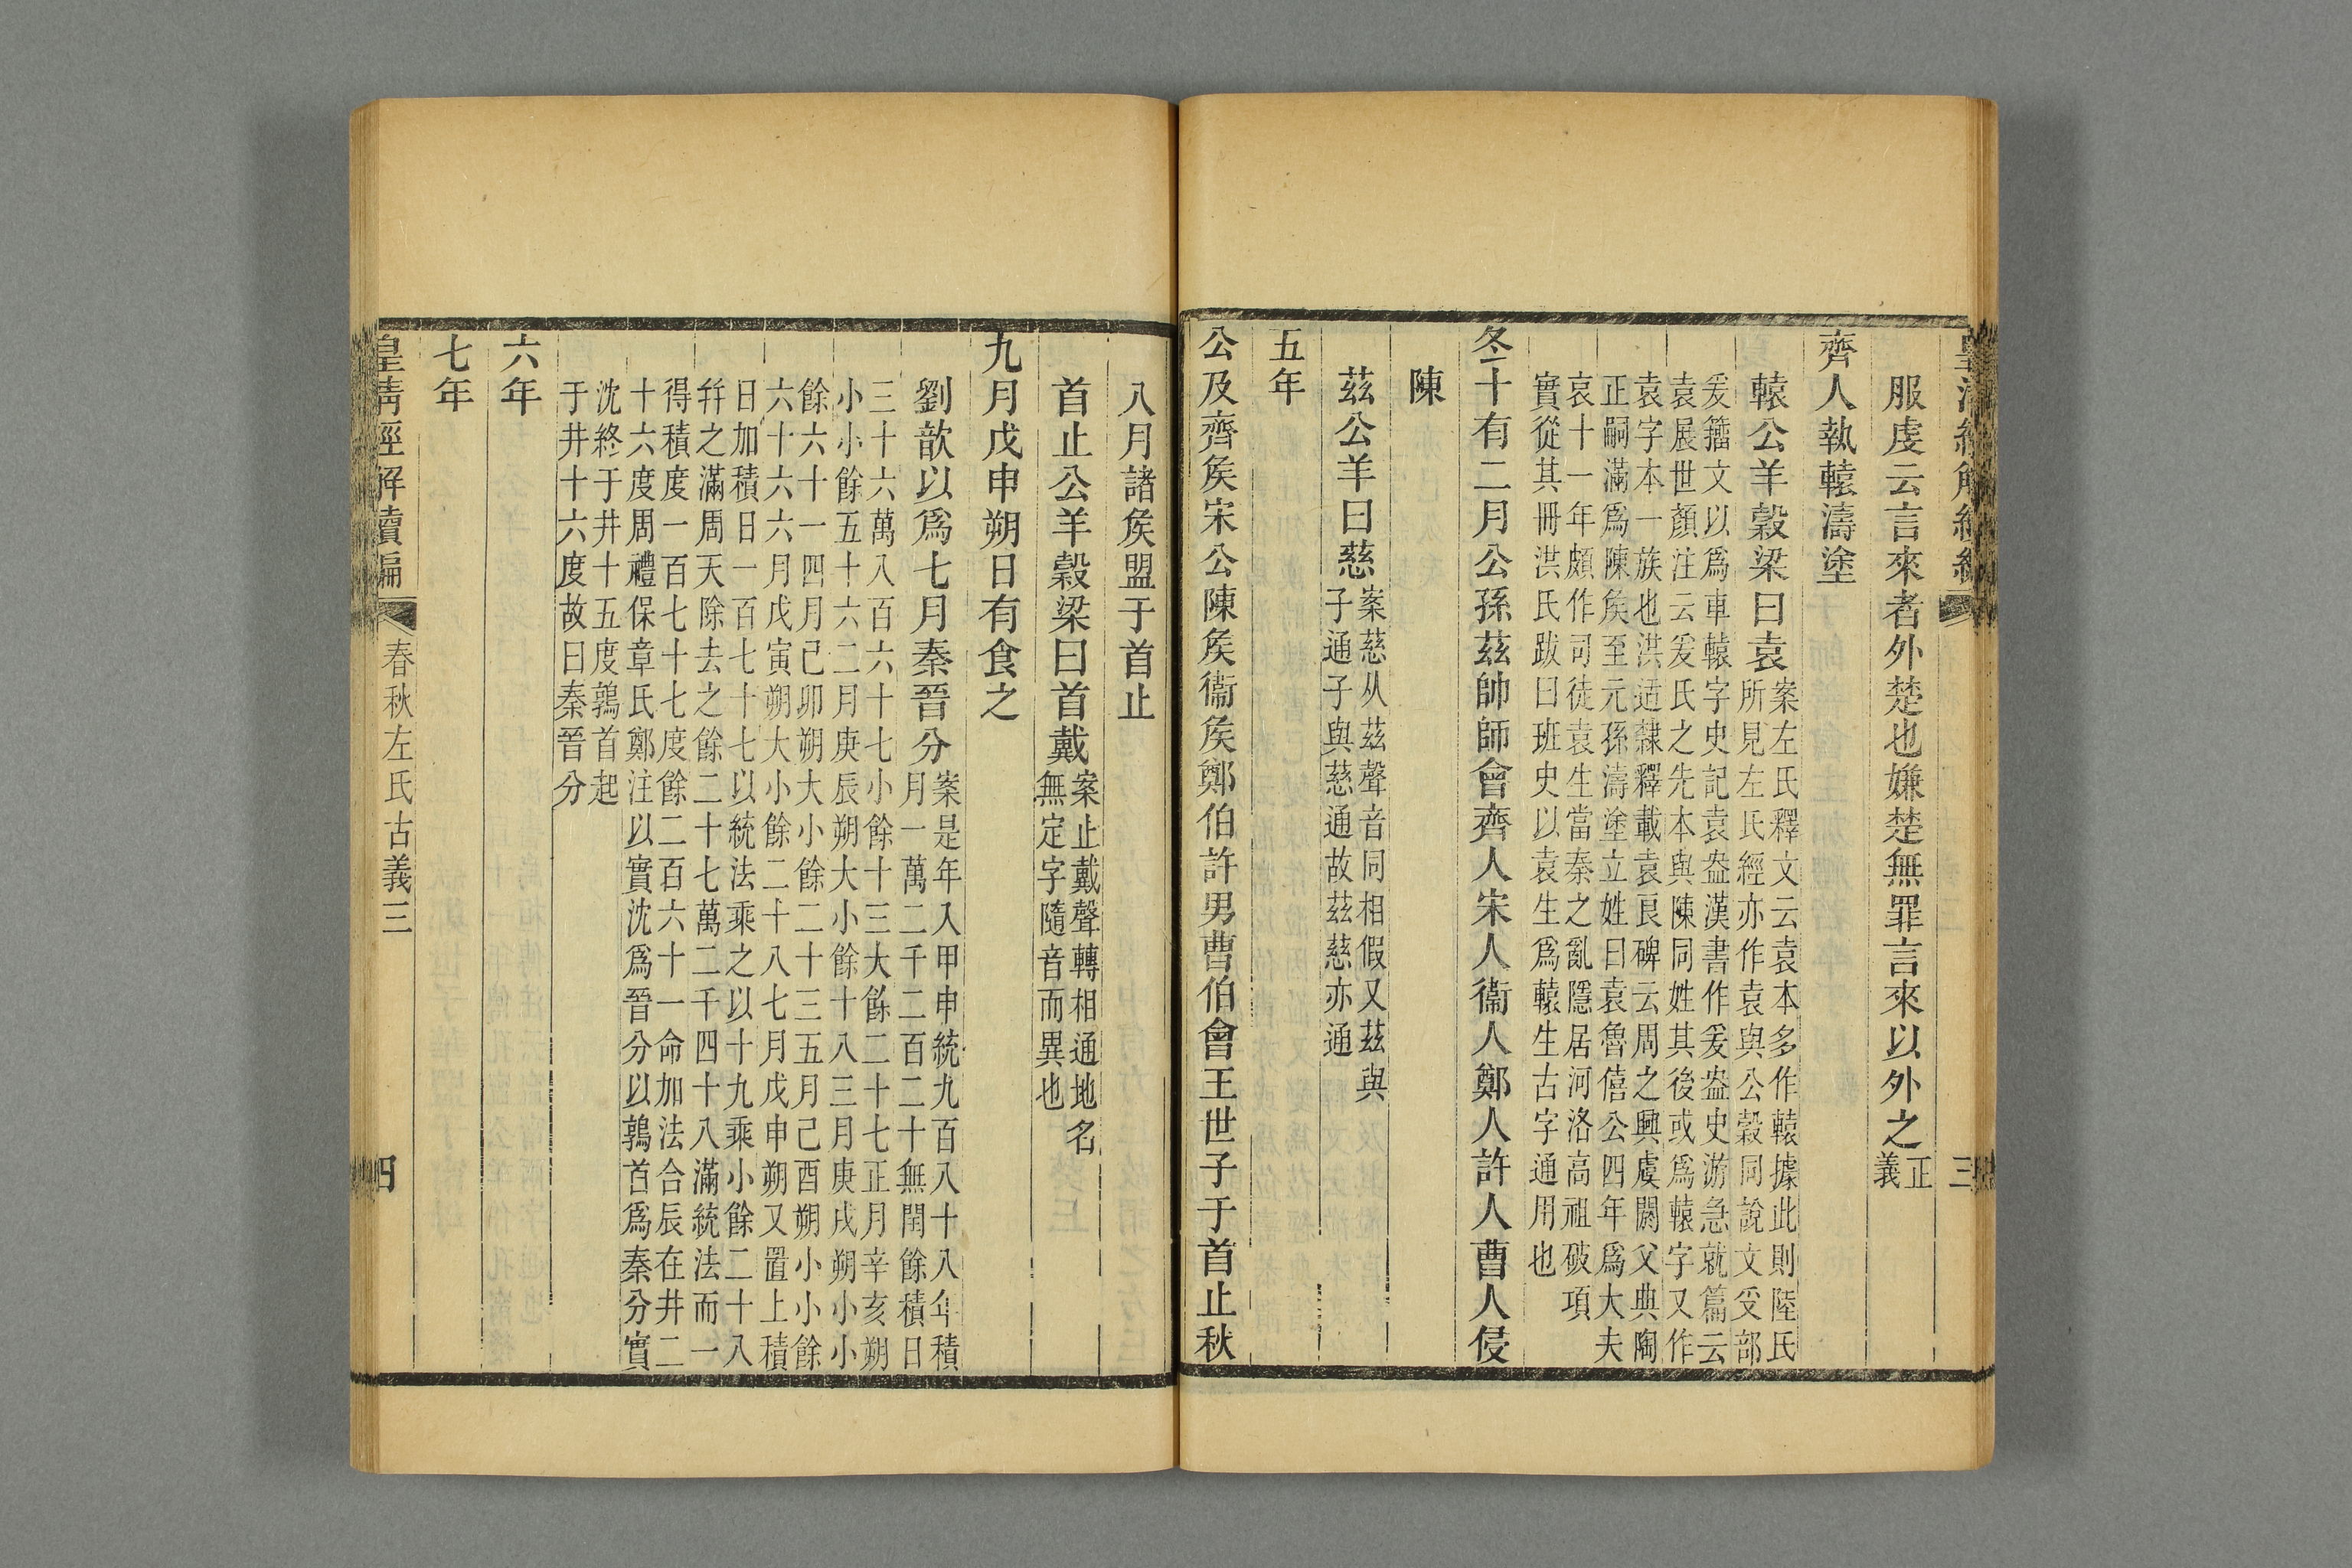 服虔云言來者外楚也嫌楚無罪言來以外之
正
義
齊人執轅濤塗
轅公羊穀梁曰袁
案左氏釋文云袁本多作轅據此則陸氏
所見左氏經亦作袁與公穀同說文𠬪部
爰籀文以爲車轅字史記袁盎漢書作爰盎史游急就篇云
袁展世顏注云爰氏之先本與陳同姓其後或爲轅字又作
袁字本一族也洪适隸釋載袁良碑云周之興虞閼父典陶
正嗣滿爲陳矦至元孫濤塗立姓曰袁魯僖公四年爲大夫
哀十一年頗作司徒袁生當秦之亂隱居河洛高祖破項
實從其冊洪氏跋曰班史以袁生爲轅生古字通用也
冬十有二月公孫茲帥師會齊人宋人衞人鄭人許人曹人侵
陳
茲公羊曰慈
案慈从茲聲音同相假又茲與
子通子與慈通故茲慈亦通
五年
公及齊矦宋公陳矦衞矦鄭伯許男曹伯會王世子于首止秋
八月諸矦盟于首止
首止公羊穀梁曰首戴
案止戴聲轉相通地名
無定字隨音而異也
九月戊申朔日有食之
劉歆以爲七月秦晉分
案是年入甲申統九百八十八年積
月一萬二千二百二十無閏餘積日
三十六萬八百六十七小餘十三大餘二十七正月辛亥朔
小小餘五十六二月庚辰朔大小餘十八三月庚戌朔小小
餘六十一四月己卯朔大小餘二十三五月己酉朔小小餘
六十六六月戊寅朔大小餘二十八七月戊申朔又置上積
日加積日一百七十七以統法乘之以十九乘小餘二十八
幷之滿周天除去之餘二十七萬二千四十八滿統法而一
得積度一百七十七度餘二百六十一命加法合辰在井二
十六度周禮保章氏鄭注以實沈爲晉分以鶉首爲秦分實
沈終于井十五度鶉首起
于井十六度故曰秦晉分
六年
七年
皇淸經解續編
春秋左氏古義三
四